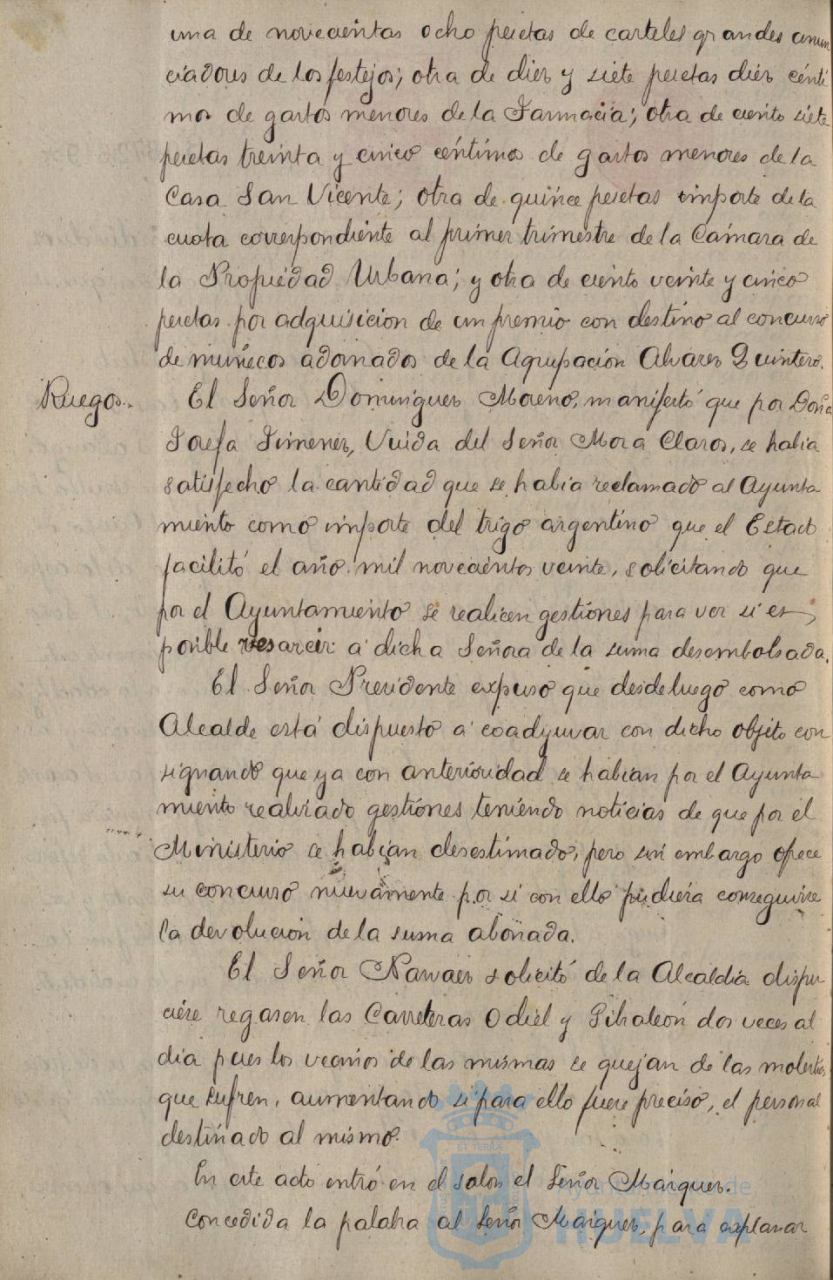 una de novecientas ocho pesetas de carteles grandes anun
ciadores de los festejos; otra de diez y siete pesetas diez cénti
mos de gastos menores de la Farmacia; otra de ciento siete
pesetas treinta y cinco céntimos de gastos menores de la
Casa San Vicente; otra de quince pesetas importe de la
cuota correspondiente al primer trimestre de la Cámara de
la Propiedad Urbana; y otra de ciento veinte y cinco
pesetas por adquisicion de un premio con destino al concurso
de muñecos adornados de la Agrupación Alvarez Quintero.
Ruegos. El Señor Dominguez Moreno, manifestó que por Doña
Josefa Jimenez, Viuda del Señor Mora Claros, se habia
satisfecho la cantidad que se habia reclamado al Ayunta
miento como importe del trigo argentino que el Estado
facilitó el año mil novecientos veinte, solicitando que
por el Ayuntamiento se realicen gestiones para ver si es
posible resarcir á dicha Señora de la suma desembolsada.
El Señor Presidente expuso que desde luego como
Alcalde está dispuesto á coadyuvar con dicho objeto con
signando que ya con anterioridad se habian por el Ayunta
miento realizado gestiones teniendo noticias de que por el
Ministerio se habian desestimado, pero sin embargo ofrece
su concurso nuevamente por si con ello pudiera conseguirse
la devolución de la suma abonada.
El Señor Narvaez solicitó de la Alcaldia dispu
siere regasen las Carreteras Odiel y Gibraleón dos veces al
dia pues los vecinos de las mismas se quejan de las molestias
que sufren, aumentando si para ello fuere preciso, el personal
destinado al mismo.
En este acto entró en el salon el Señor Maiquez.
Concedida la palabra al Señor Maiquez, para explanar
Ayuntamiento de
HUELVA